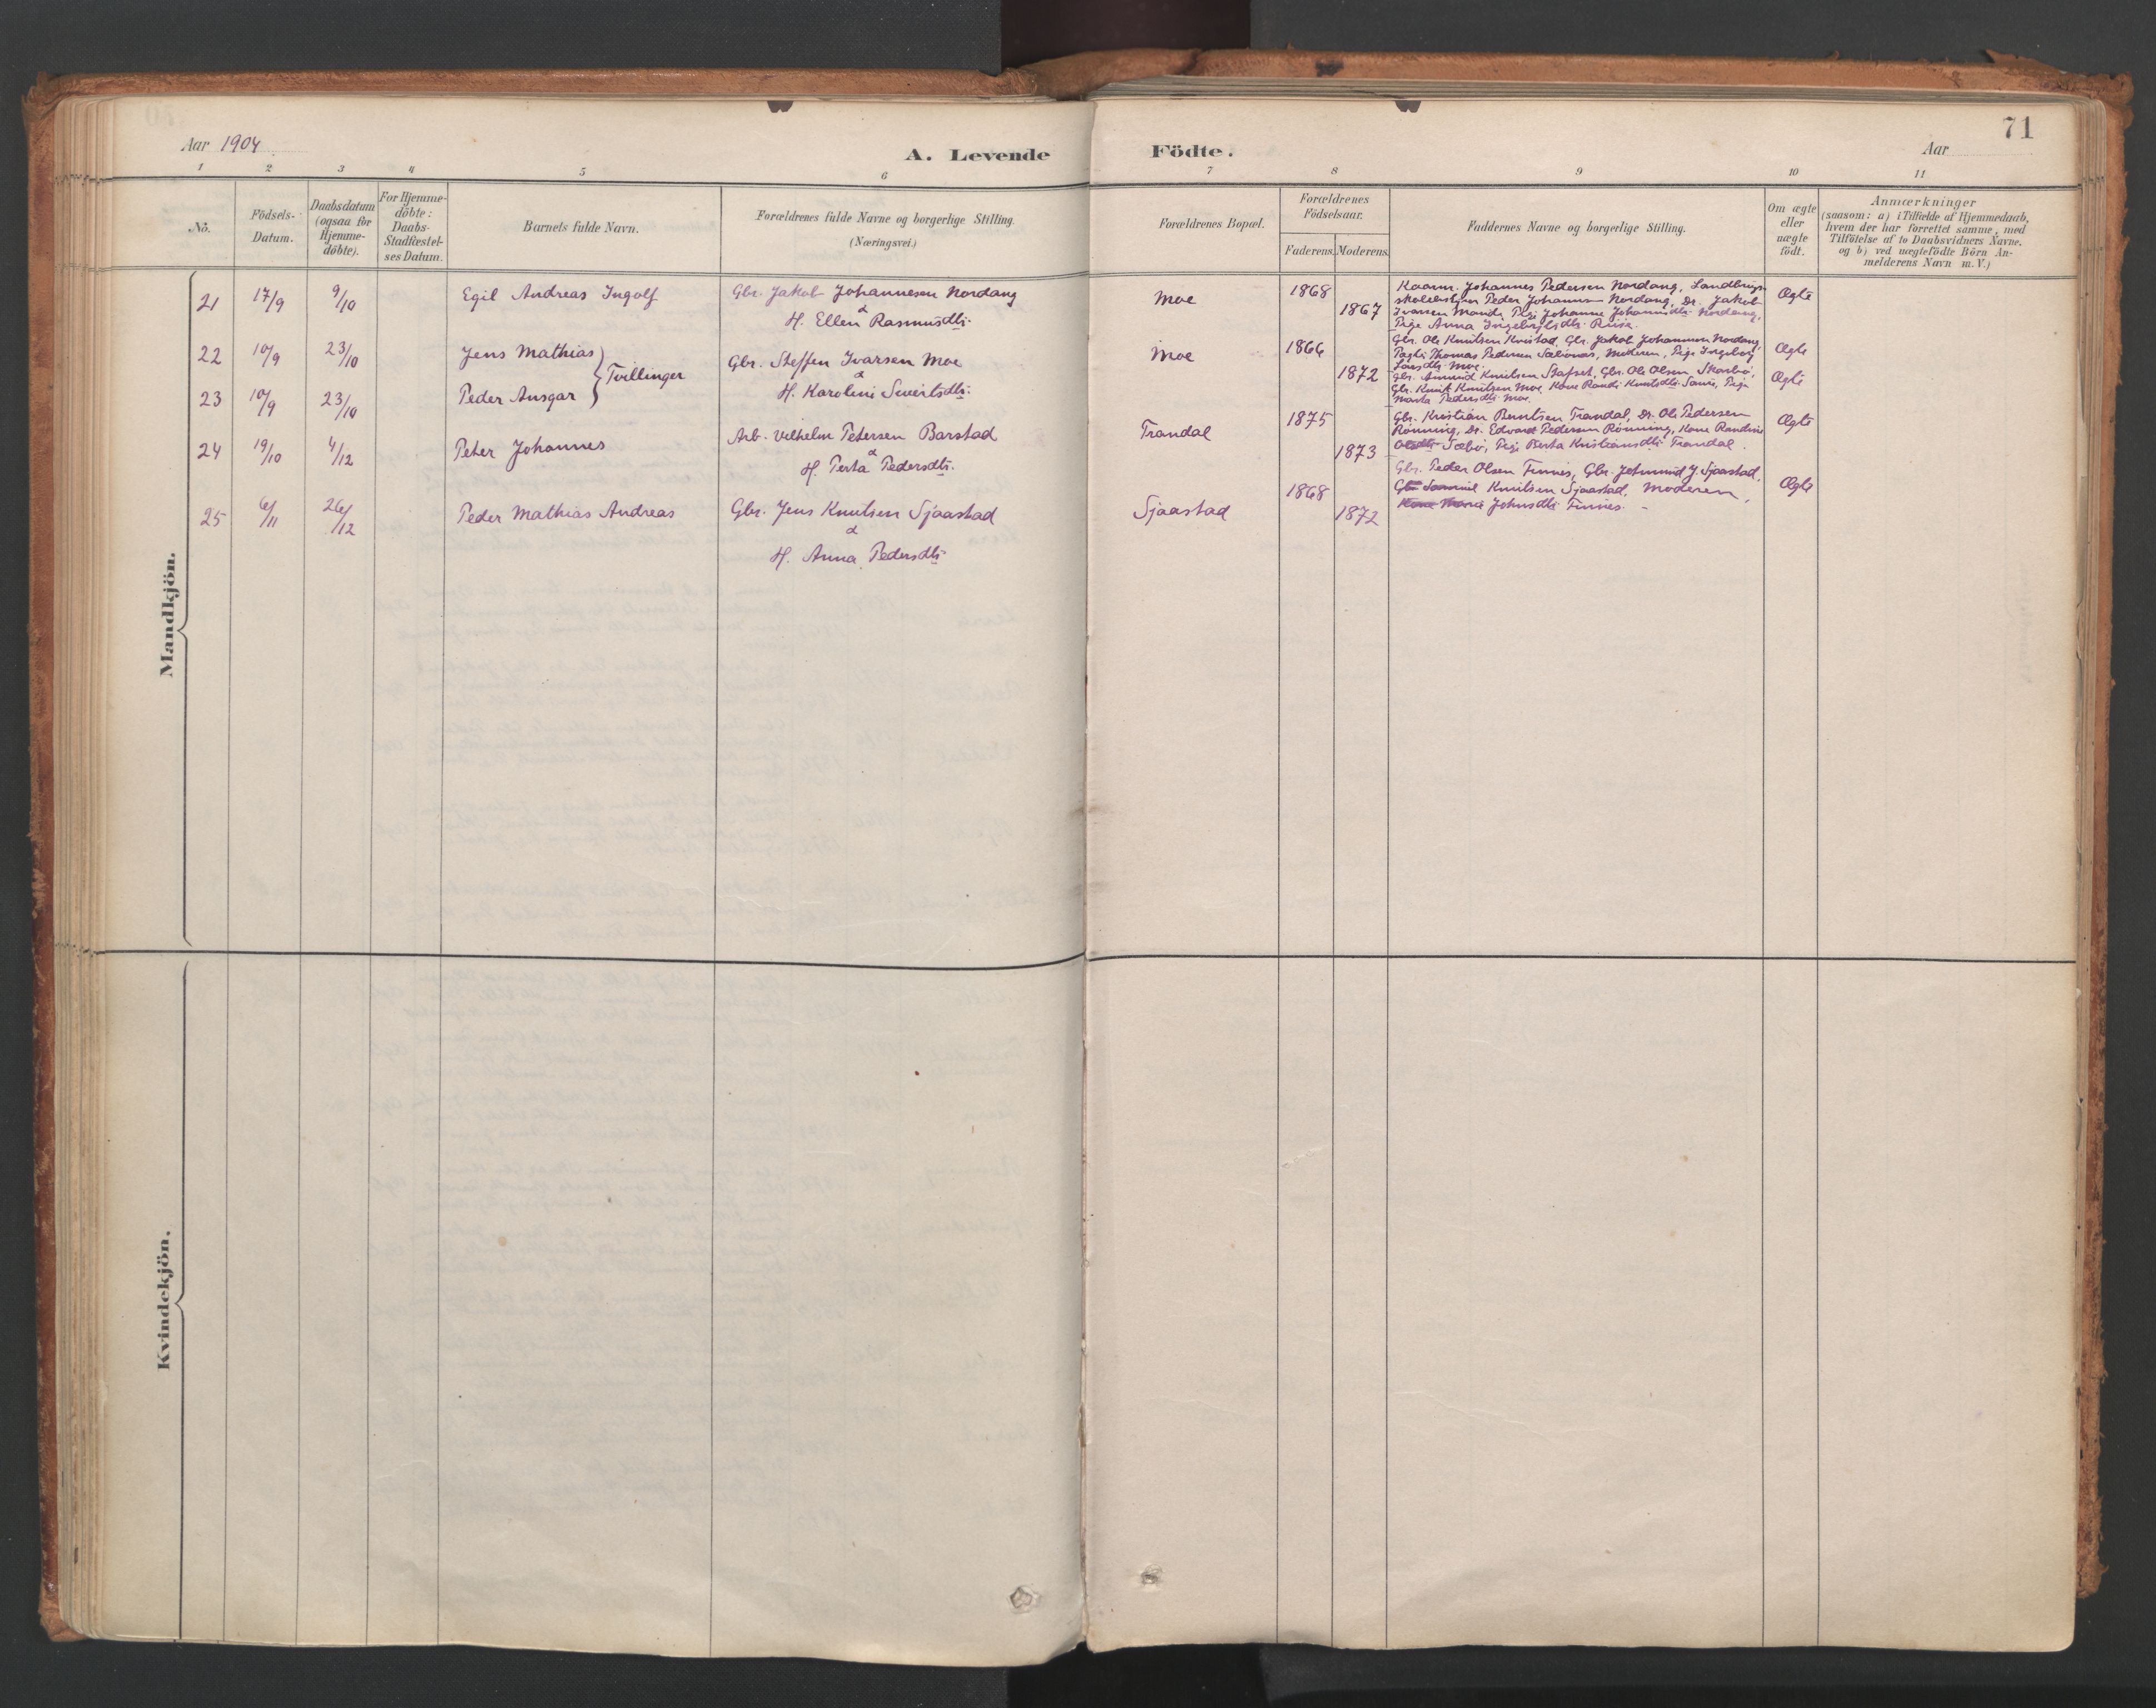 71
Aar 1904
A. Levende Födte.
Aar
1 2 3 4 5 6 7 8 9 10 11
No.
Födsels-Datum.
Daabsdatum (ogsaa for Hjemme-döbte).
For Hjemme-döbte: Daabs-Stadfæstel-ses Datum.
Barnets fulde Navn.
Forældrenes fulde Navne og borgerlige Stilling.
(Næringsvei.)
Forældrenes Bopæl.
Forældrenes Födselsaar.
Faderens. Moderens.
Faddernes Navne og borgerlige Stilling.
Om ægte eller uægte födt.
Anmærkninger
(saasom: a) i Tilfælde af Hjemmedaab,
hvem der har forrettet samme, med
Tilföielse af to Daabsvidners Navne.
og b) ved uægtefödte Börn An-
melderens Navn m. V.)
Mandkjön.
21 17/9 9/10 Egil Andreas Ingolf
Gbr. Jakob Johannesen Nordang
&
H. Ellen Rasmusdtr.
Moe 1868 1867
Kaarm. Johannes Pedersen Nordang, Landbrugs
skolebestyrer Peder Johannsen Nordang, Dr. Jakob
Ivarsen Maude, Pige Johanne Johannsdtr. Nordang,
Pige Anna Ingebrigtsdtr. Riise.
Ægte
22 10/9 23/10 Jens Mathias
23 10/9 23/10 Peder Ansgar
Tvillinger
Gbr. Steffen Ivarsen Moe
&
H. Karoline Sivertsdtr.
Moe 1866 1872
Gbr. Ole Knutsen Kvistad, Gbr. Jakob Johannsen Nordang,
Thomas Pedersen Sæbönes, Moderen, Pige Ingeborg
Larsdtr. Moe.
Ægte
Gbr. Amund Knutsen Stafset, Gbr. Ole Olsen Skarbö,
Gbr. Knut Knutsen Moe, Kone Randi Knutsdtr. Pige
Marta Pedersdtr. Moe.
Ægte
24 19/10 4/12 Peter Johannes
Arb. Vilhelm Petersen Barstad
&
H. Perta Pedersdtr.
Trandal 1875 1873
Gbr. Kristian Berntsen Trandal, Dr. Ole Pedersen
Rönning, Dr. Edvard Pedersen Rönning, Kone Randine
Olsdtr. Sæbö, Pige Berta Kristiansdtr. Trandal.
Ægte
25 6/11 26/12 Peder Mathias Andreas
Gbr. Jens Knutsen Sjaastad
&
H. Anna Pedersdtr.
Sjaastad 1868 1872
Gbr. Peder Olsen Finnes, Gbr. Jetmund J. Sjaastad,
Gbr. Samuel Knutsen Sjaastad, Moderen,
Kone Marie Johnsdtr. Finnes.
Ægte
Kvindekjön.